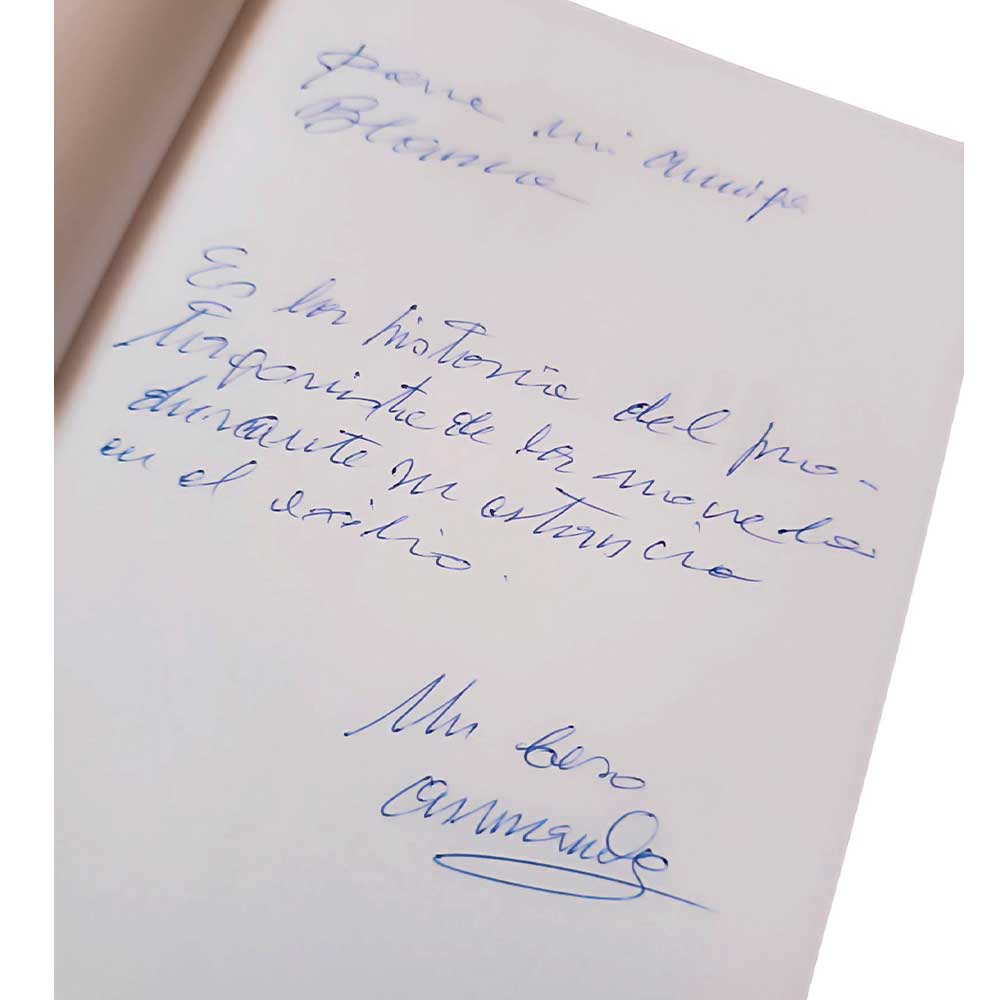 para mi amiga
Blanca
Es la historia del pro-
tagonista de la novela
durante su estancia
en el exilio.
Un beso
Armando